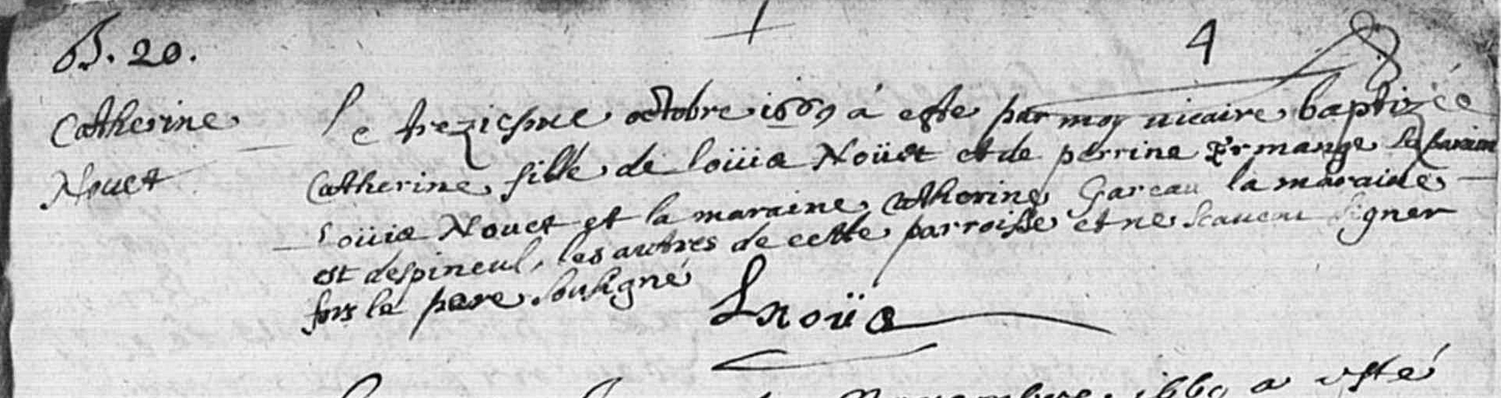 B. 20.
4
Catherine
Nouet
le treziesme octobre 1669 a esté par moy vicaire baptizée
Catherine fille de loüis Noüet et de perrine Ermange le parain
loüis Nouet et la maraine Catherine Gareau la maraine
est despineul, les autres de cette parroisse et ne scavent signer
fors le pere soubsigné
LNoüe
1669 a esté